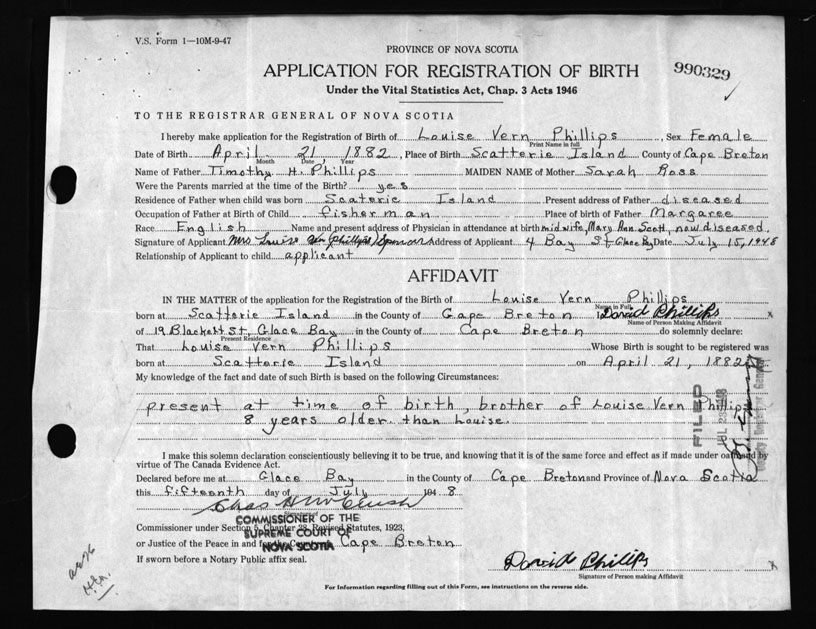 V.S. Form 1—10M-9-47
PROVINCE OF NOVA SCOTIA
APPLICATION FOR REGISTRATION OF BIRTH
990329
Under the Vital Statistics Act, Chap. 3 Acts 1946
TO THE REGISTRAR GENERAL OF NOVA SCOTIA
I hereby make application for the Registration of Birth of Louise Vern Phillips, Sex Female
Print Name in full
Date of Birth April 21 1882, Place of Birth Scatterie Island County of Cape Breton
Month Date Year
Name of Father Timothy H. Phillips MAIDEN NAME of Mother Sarah Ross
Were the Parents married at the time of the Birth? yes
Residence of Father when child was born Scaterie Island Present address of Father diseased
Occupation of Father at Birth of Child fisherman Place of birth of Father Margaree
Race English Name and present address of Physician in attendance at birth midwife, Mary Ann Scott, now diseased.
Signature of Applicant Mrs Louise Phillips Spencer Address of Applicant 4 Bay St Glace Bay Date July 15, 1948
Relationship of Applicant to child applicant
AFFIDAVIT
IN THE MATTER of the application for the Registration of the Birth of Louise Vern Phillips
Name in Full
born at Scatterie Island in the County of Cape Breton I David Phillips x
Name of Person Making Affidavit
of 19 Blackett St, Glace Bay in the County of Cape Breton do solemnly declare:
Present Residence
That Louise Vern Phillips Whose Birth is sought to be registered was
born at Scatterie Island on April 21, 1882
My knowledge of the fact and date of such Birth is based on the following Circumstances:
present at time of birth, brother of Louise Vern Phillips
8 years older than Louise.
FILED
JUL 23 1948
I make this solemn declaration conscientiously believing it to be true, and knowing that it is of the same force and effect as if made under oath and by
virtue of The Canada Evidence Act.
Declared before me at Glace Bay in the County of Cape Breton and Province of Nova Scotia
this fifteenth day of July 1948
Chas
Signature of
Commissioner under Section 5, Chapter 38, Revised Statutes, 1923,
COMMISSIONER OF THE
SUPREME COURT OF
NOVA SCOTIA
or Justice of the Peace in and for the County of Cape Breton
If sworn before a Notary Public affix seal.
David Phillips x
Signature of Person making Affidavit
For Information regarding filling out of this Form, see instructions on the reverse side.